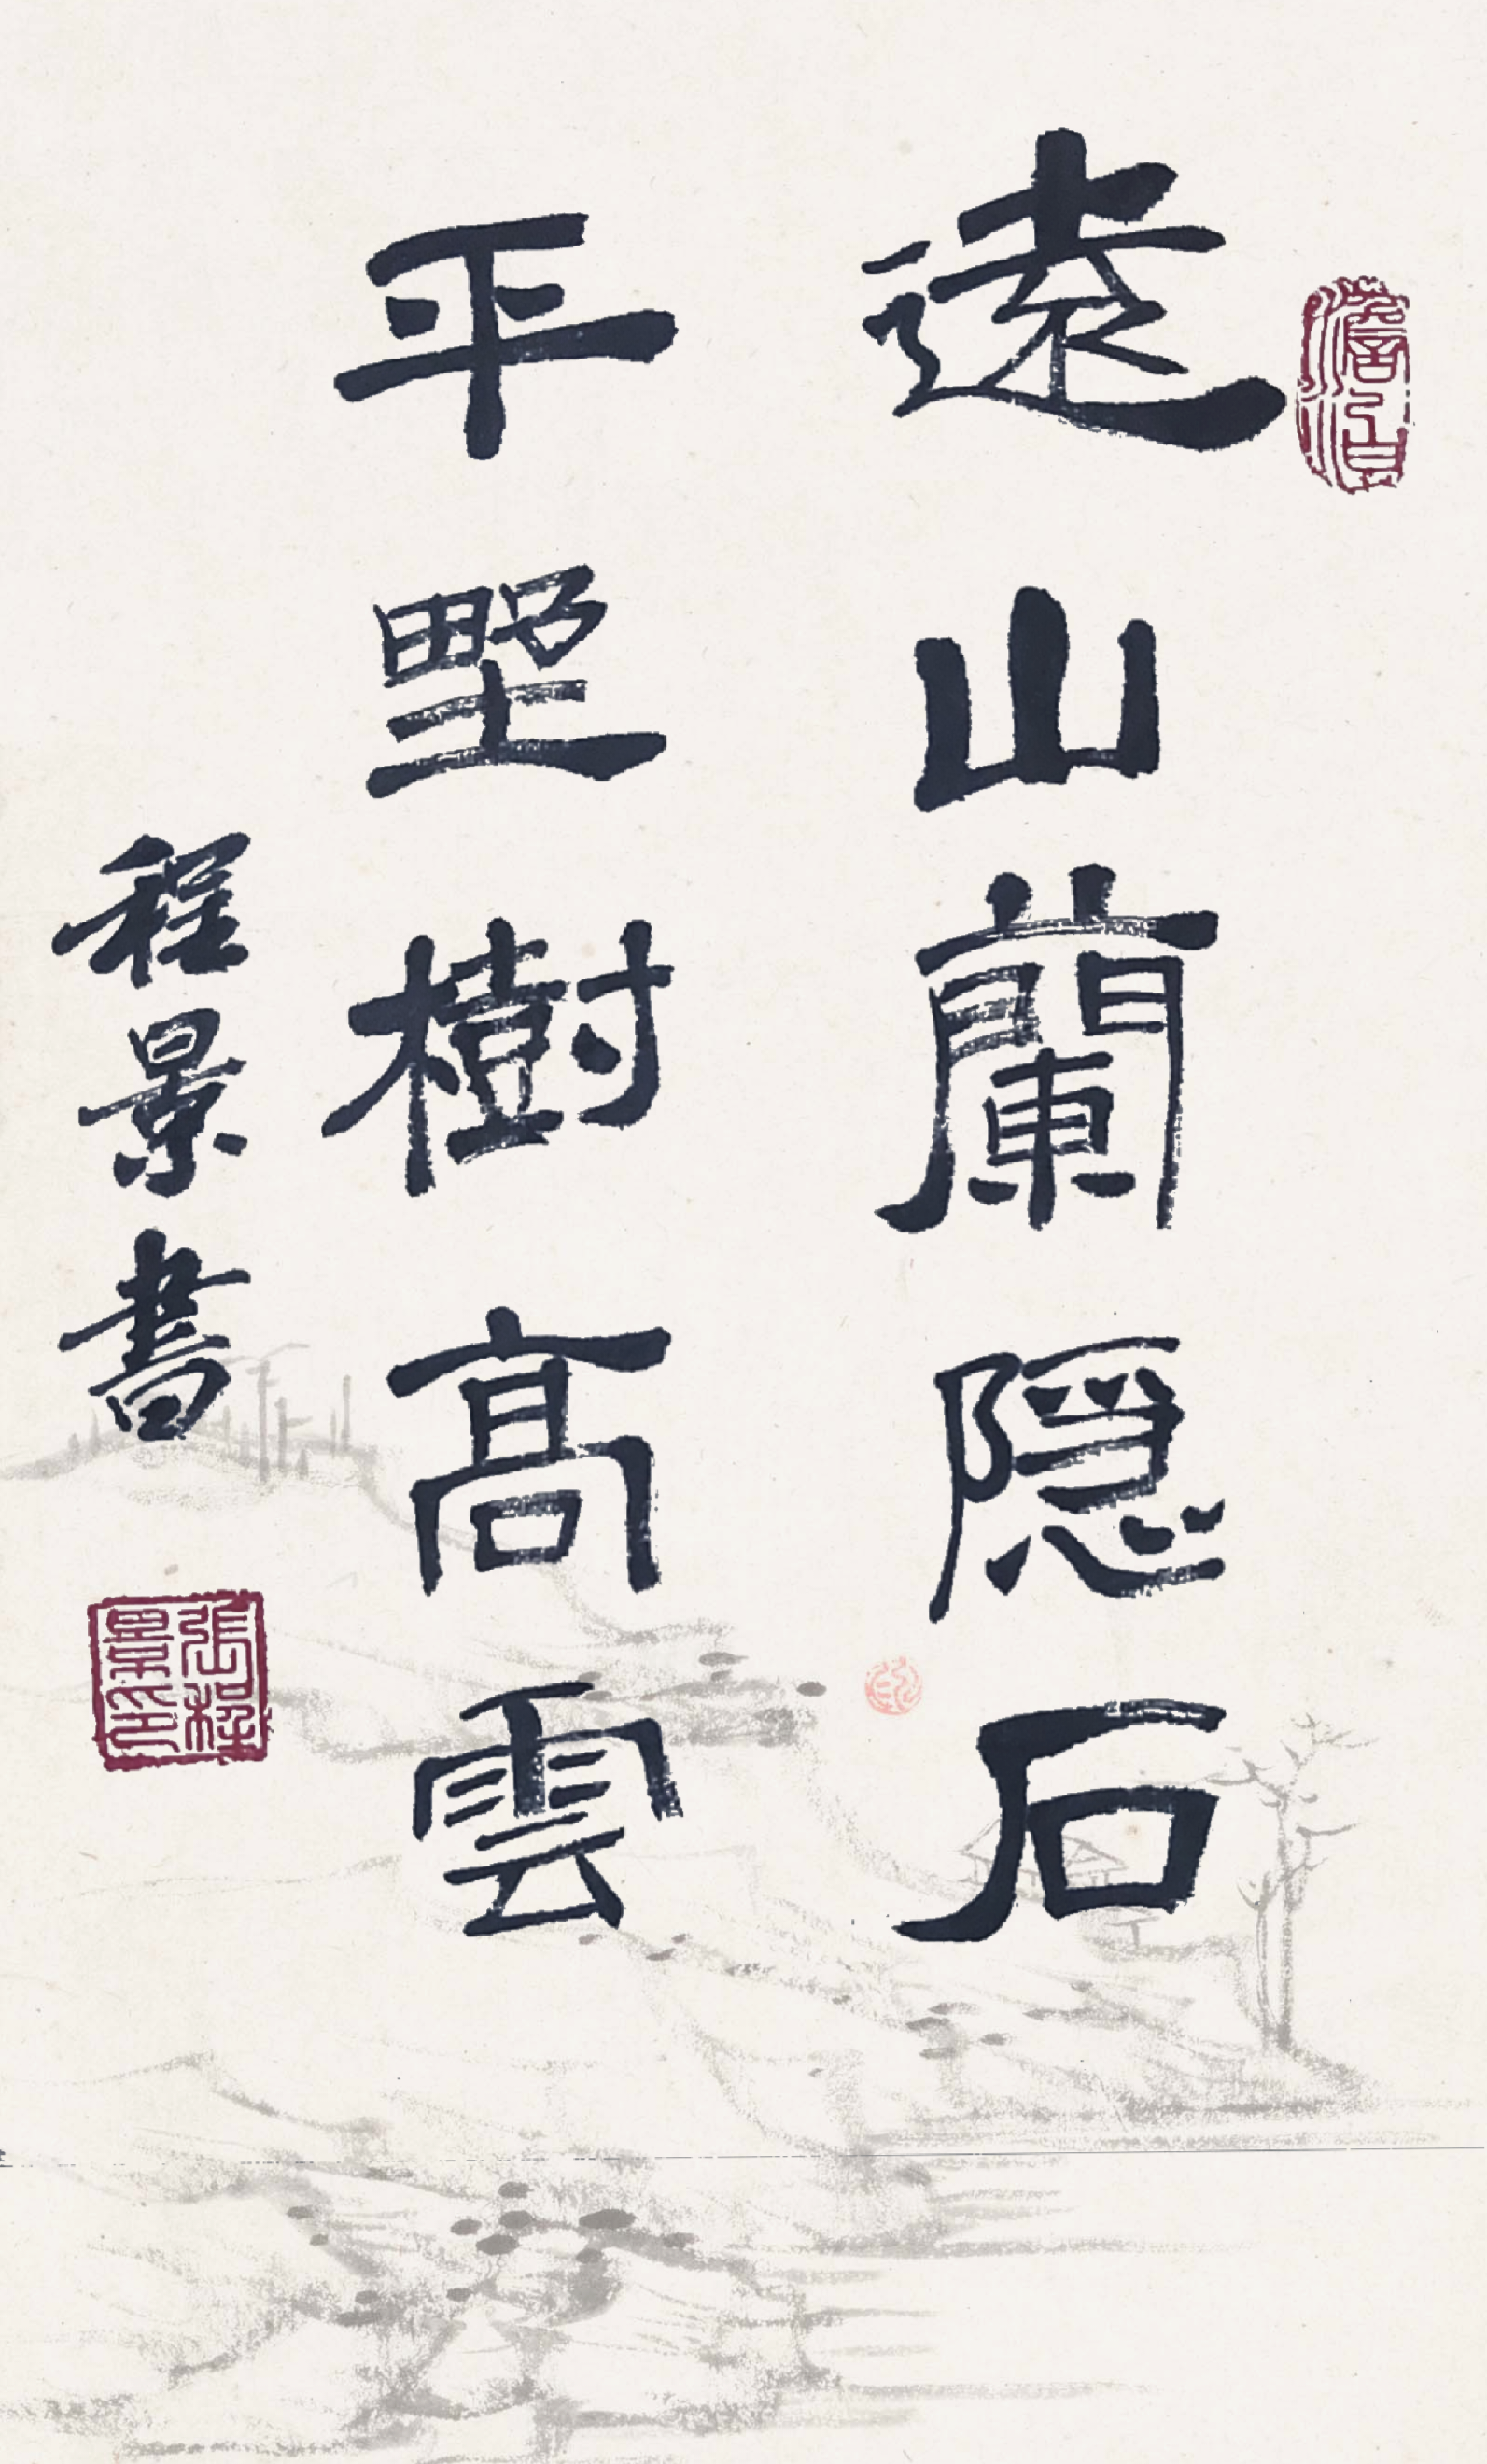 遠山蘭隱石
平墅樹高雲
程景書
澹泊
張程景印